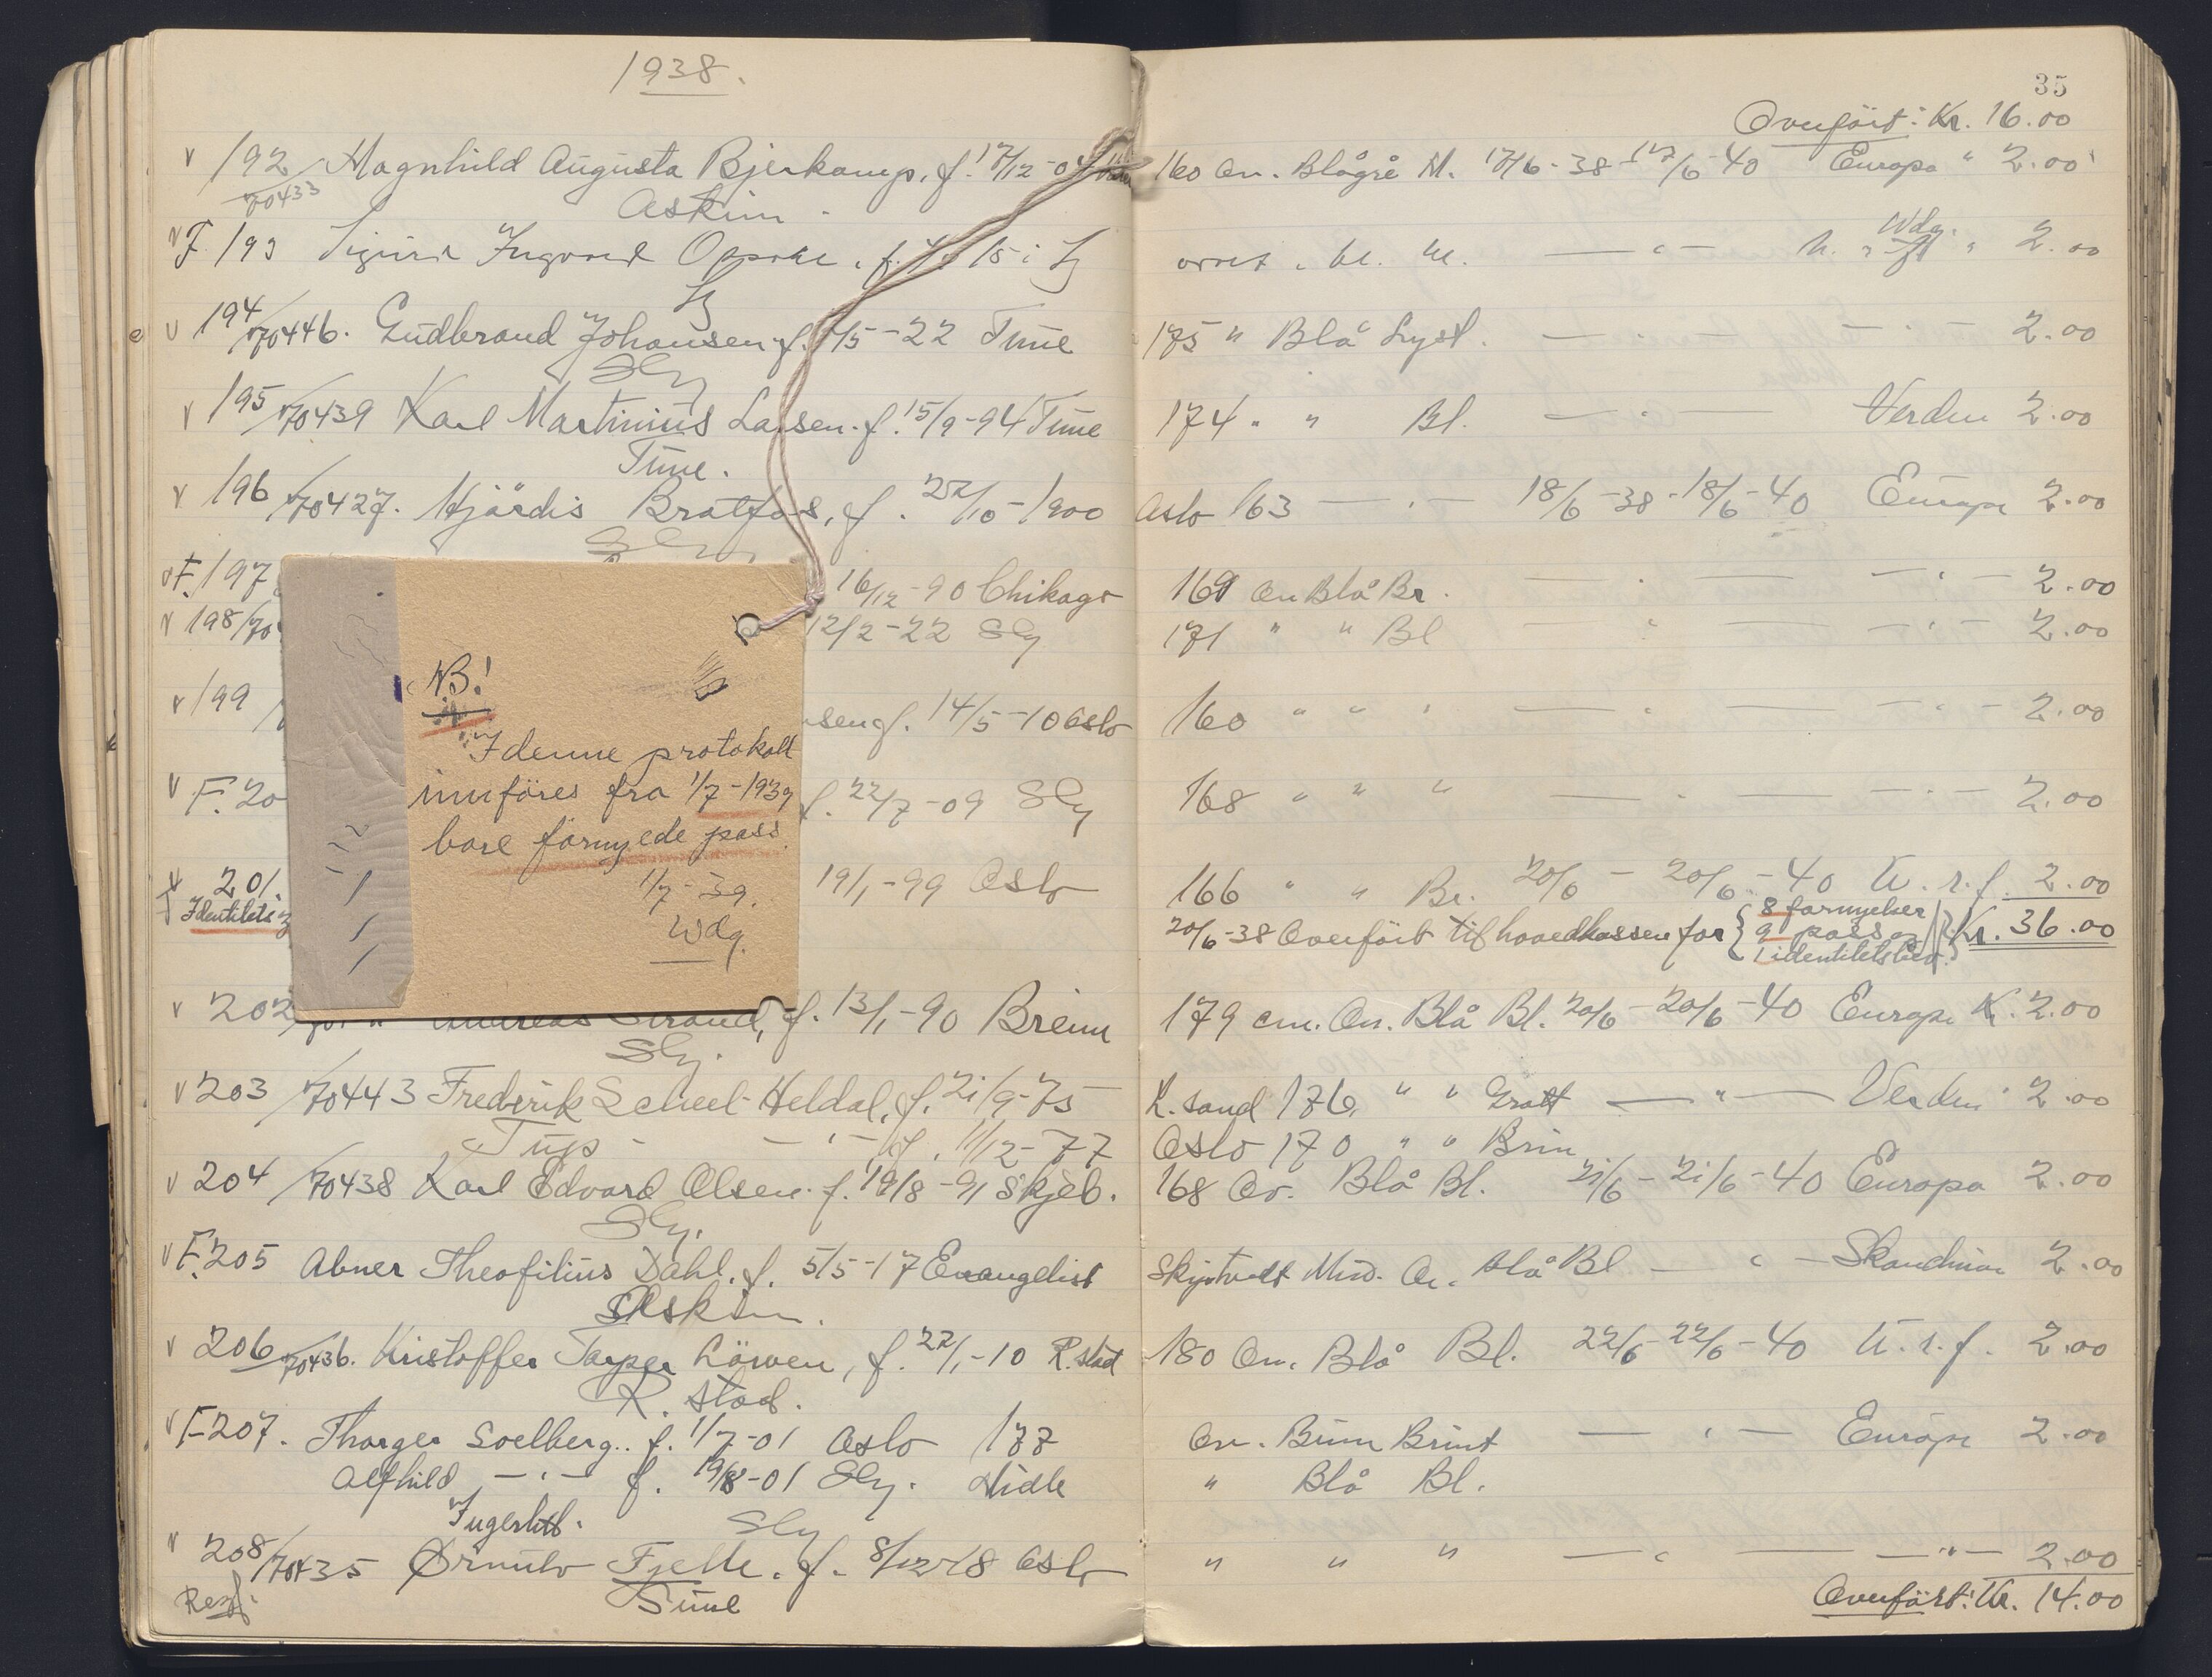 1938.
35
Overført: Kr. 16.00
192 Magnhild Augusta Bjerkamp, f. 17/12-0 160 Ov. Blågrå M. 17/6-38-17/6-40 Europa " 2.00
70433 Askim.
F. 193 Sigurd Ingvard f. 15 i ovnst. bl. M. — " — Wdg. 2.00
194/70446. Gudbrand Johansen f. /5-22 Tune 175 " Blå Lyst. — " — — " — 2.00
Slg
195/70439 Karl Martinius Larsen. f. 15/9-94 Tune 174 " " Bl. — " — Verden 2.00
Tune.
196/70427. Hjørdis Bratfos, f. 22/10-1900 Oslo 163 — " — 18/6-38-18/6-40 Europa 2.00
F. 197 16/12-90 Chikago 169 Ov. Blå Br. — " — — " — 2.00
198/70 12/2-22 Slg 171 " " Bl — " — — " — 2.00
199 sen f. 14/5-10 Oslo 160 " " " — " — — " — 2.00
F. 20 f. 22/7-09 Slg 168 " " " — " — — " — 2.00
201. 19/1-99 Oslo 166 " " Br. 20/6 — 20/6-40 U.r.f. 2.00
Identitets
20/6-38 Overført til hovedkassen for { 8 fornyelser 9 pass og 1 identitetsbev. } Kr. 36.00
NB!
I denne protokoll
innføres fra 1/7-1939
bare fornyede pass.
1/7-39.
Wdg.
202 Andreas Strand, f. 13/1-90 Breim 179 cm. Ov. Blå Bl. 20/6-20/6-40 Europa K. 2.00
Slg.
203/70443 Frederik Scheel Heldal, f. 21/9-75 K.sand 176 " " Grått — " — Verden 2.00
— " — f. 11/12-77 Oslo 170 " " Brun
204/70438 Karl Edvard Olsen f. 19/8-91 Skjeb. 168 Ov. Blå Bl. 21/6-21/6-40 Europa 2.00
Slg.
F. 205 Abner Theofilius Dahl. f. 5/5-17 Evangelist Mid. Ov. blå Bl — " — Skandinav 2.00
Askim.
206/70436. Kristoffer Jasper Löwen, f. 22/1-10 R.stad 180 Ov. Blå Bl. 22/6-22/6-40 U.r.f. 2.00
R.stad.
F 207. Thorger Soelberg.. f. 1/7-01 Oslo 177 Ov. Brun Brunt — " — Europa 2.00
Alfhild — " — f. 19/8-01 Slg. Midle " Blå Bl.
Slg
208/70435 Ørnulv Fjelle. f. 8/12-18 Oslo " " " — " — — " — 2.00
Tune
Overført: Kr. 14.00